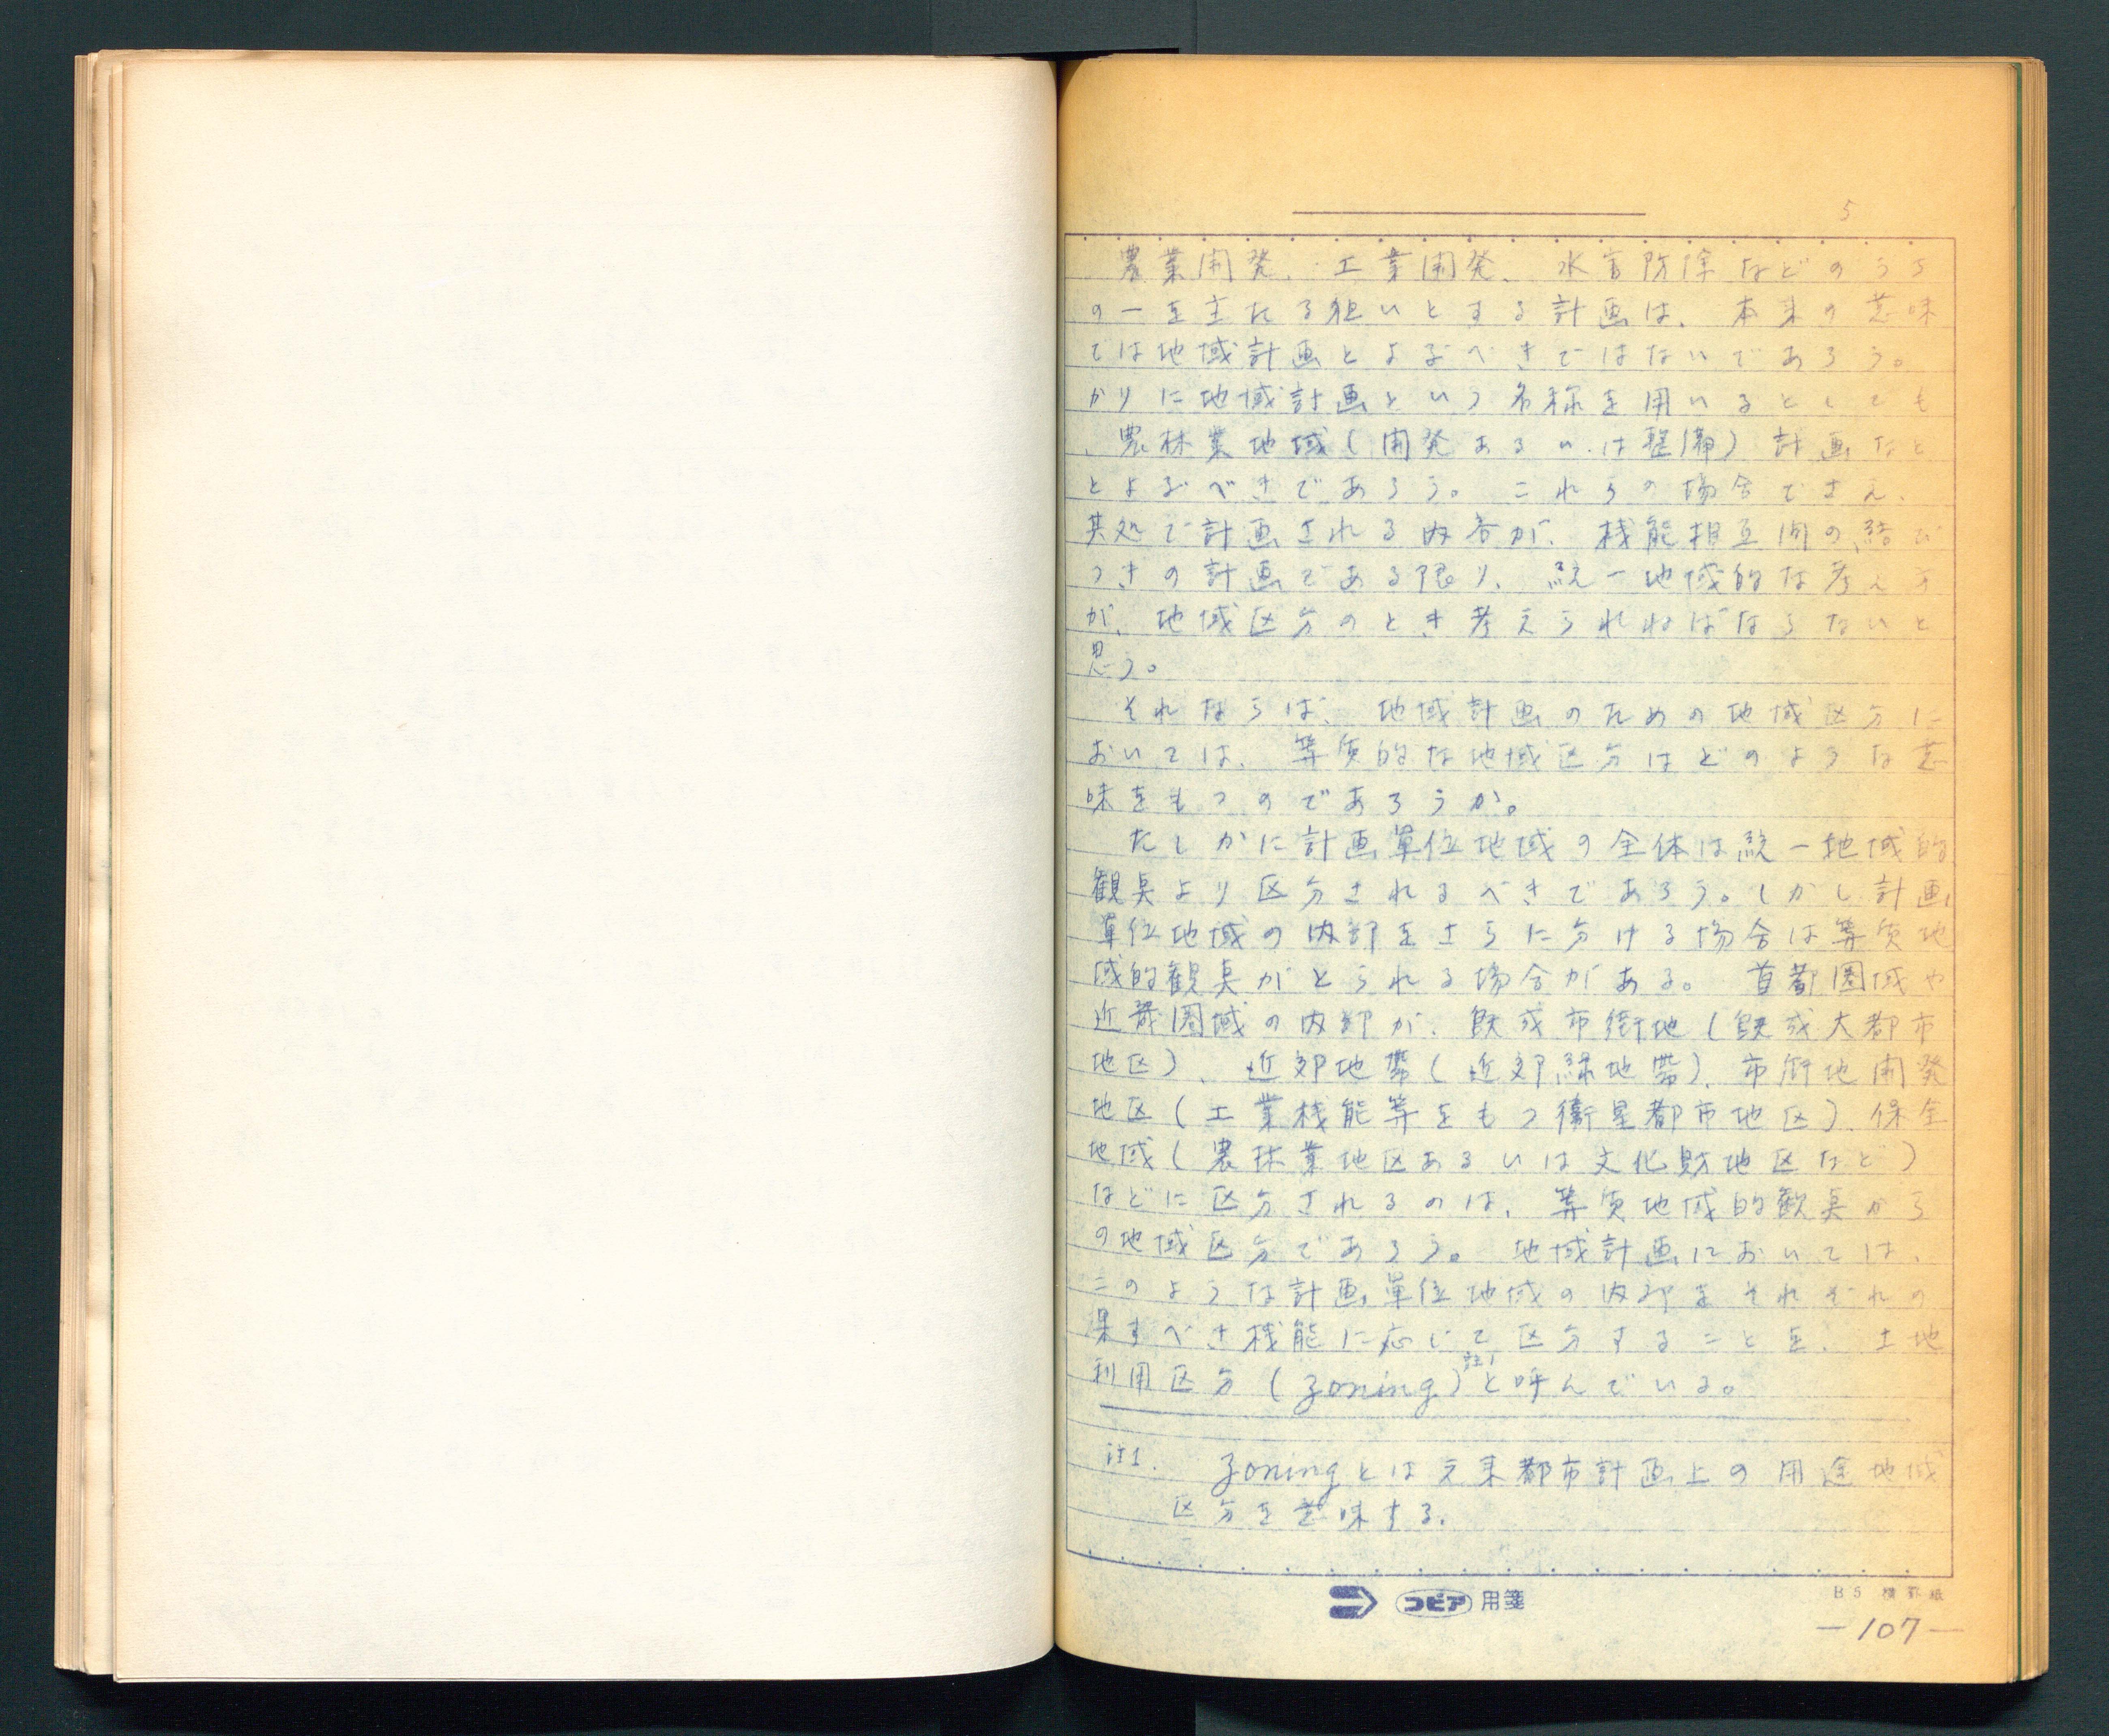 5
農業開発、工業開発、水害防除などのうち
の一を主たる狙いとする計画は、本来の意味
では地域計画とよぶべきではないであろう。
かりに地域計画という名称を用いるとしても
、農林業地域(開発あるいは整備)計画など
とよぶべきであろう。これらの場合でさえ、
其処で計画される内容が、機能相互間の結び
つきの計画である限り、統一地域的な考え方
が、地域区分のとき考えられねばならないと
思う。
それならば、地域計画のための地域区分に
おいては、等質的な地域区分はどのような意
味をもつのであろうか。
たしかに計画単位地域の全体は統一地域的
観点より区分されるべきであろう。しかし計画
単位地域の内部をさらに分ける場合は等質地
域的観点がとられる場合がある。首都圏域や
近畿圏域の内部が、既成市街地(既成大都市
地区)、近郊地帯(近郊緑地帯)、市街地開発
地区(工業機能等をもつ衛星都市地区)、保全
地域(農林業地区あるいは文化財地区など)
などに区分されるのは、等質地域的観点から
の地域区分であろう。地域計画においては、
このような計画単位地域の内部をそれぞれの
果すべき機能に応じて区分することを、土地
利用区分(zoning)註1と呼んでいる。
註1. zoningとは元来都市計画上の用途地域
区分を意味する。
コピア 用箋
B5 横罫紙
—107—